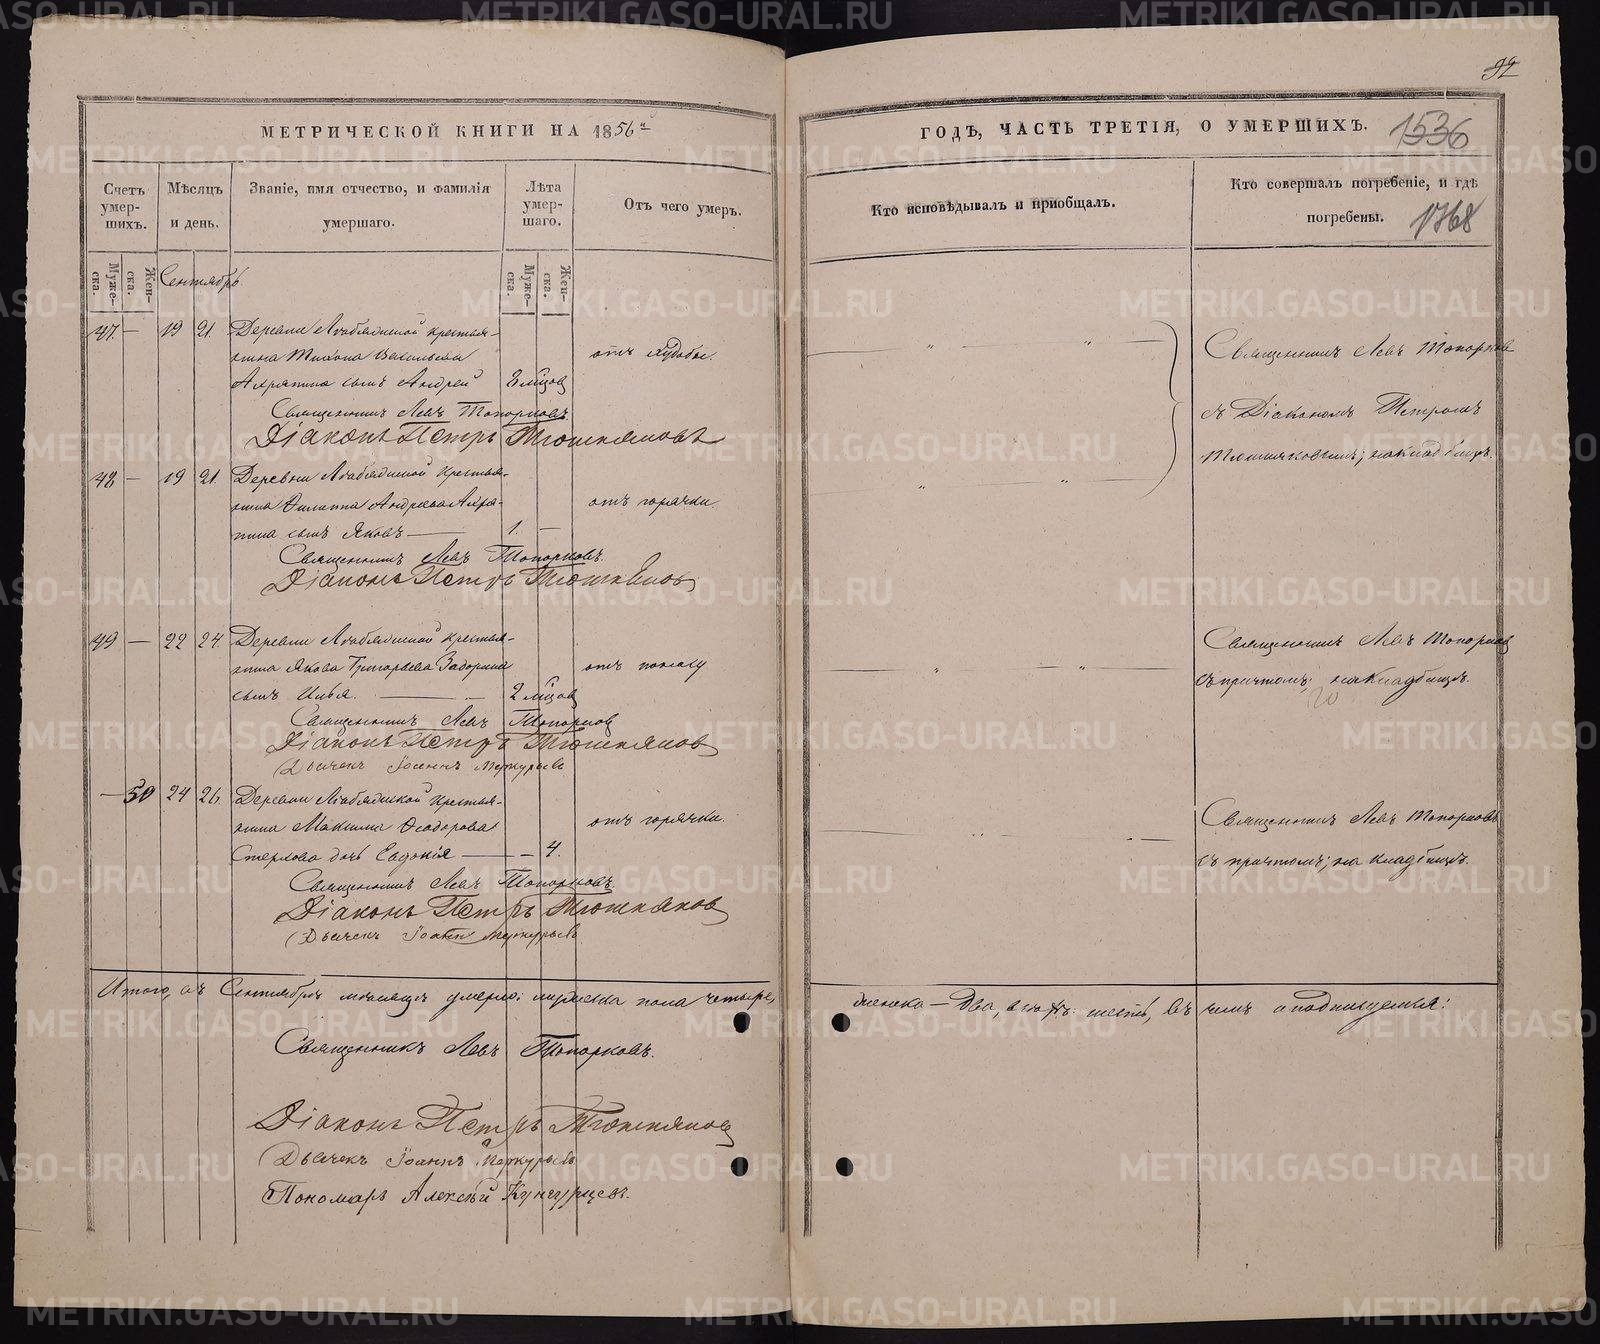 92
МЕТРИЧЕСКОЙ КНИГИ НА 1856й
ГОДЪ, ЧАСТЬ ТРЕТІЯ, О УМЕРШИХЪ.
1536
Счетъ умер-шихъ.
Мѣсяцъ и день.
Званіе, имя отчество, и фамилія умершаго.
Лѣта умер-шаго.
Отъ чего умеръ.
Кто исповѣдывалъ и пріобщалъ.
Кто совершалъ погребеніе, и гдѣ погребены.
1768
Муже-ска.
Жен-ска.
Сентябрь
Муже-ска.
Жен-ска.
47. — 19 21. Деревни крестья-
нина Тихона Васильева
сынъ Андрей
отъ худобы.
Священникъ Левъ Топорковъ.
Діаконъ Петръ Тюшняковъ
Священникъ Левъ Топорков
съ Діакономъ Петромъ
Тюшняковымъ; на кладбищѣ.
48 — 19 21. Деревни крестья-
нина Филиппа Андреева
сынъ Яковъ — 1. —
отъ горячки.
Священникъ Левъ Топорковъ.
Діаконъ Петръ Тюшняков
49 — 22 24. Деревни крестья-
нина Якова Григорьева Задорина
сынъ Илья. — 2 мѣсяцов
отъ поносу
Священникъ Левъ Топорков
Діаконъ Петръ Тюшняков
Дьячекъ Іоаннъ Меркурьевъ
Священникъ Левъ Топорков
съ причтомъ; на кладбищѣ.
— 50 24 26. Деревни крестья-
нина Максима Ѳеодорова
дочь Евдокія — — 4.
отъ горячки.
Священникъ Левъ Топорковъ.
Діаконъ Петръ Тюшняков
Дьячекъ Іоаннъ Меркурьевъ
Священникъ Левъ Топорковъ
съ причтомъ; на кладбищѣ.
Итого, въ Сентябрѣ мѣсяцѣ умерло: мужеска пола четыре,
женска — два, шесть, въ чемъ и подписуемся:
Священникъ Левъ Топорковъ.
Діаконъ Петръ Тюшняков
Дьячекъ Іоаннъ Меркурьевъ
Пономарь Алексѣй Кунгурцевъ.
METRIKI.GASO-URAL.RU